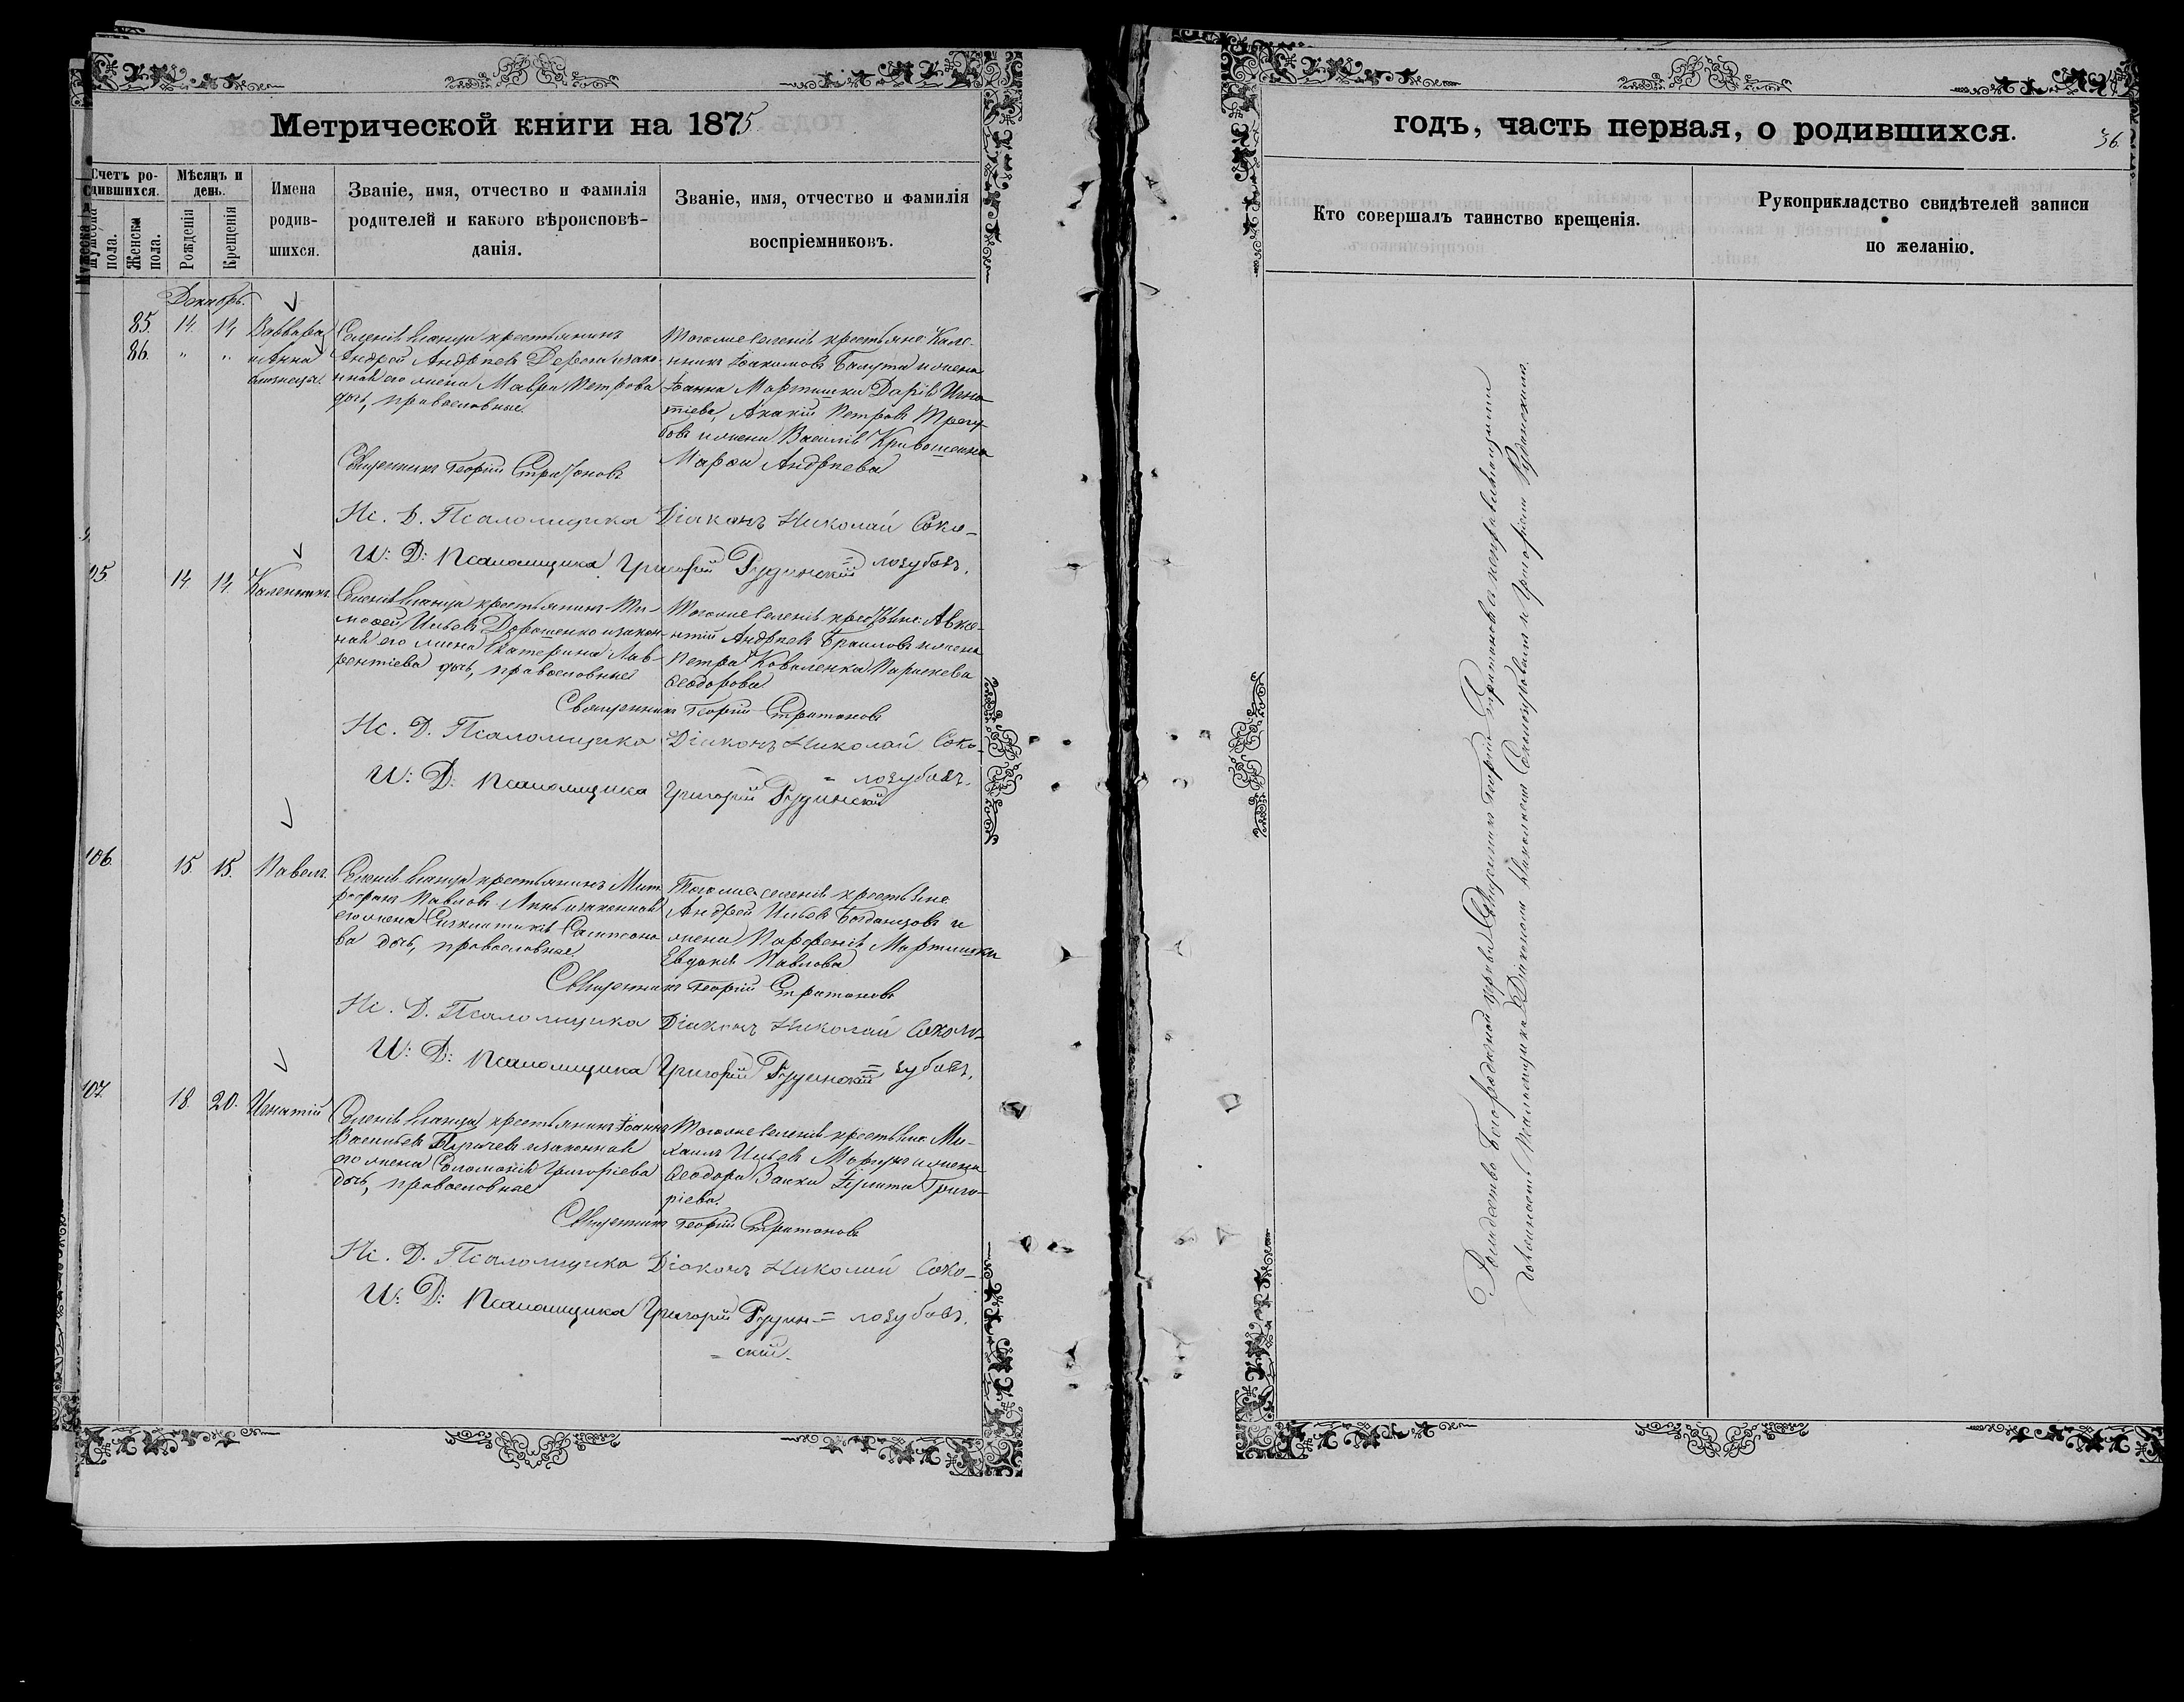 Метрической книги на 1875
годъ, часть первая, о родившихся.
36.
Счетъ родившихся.
Мужеска пола.
Женска пола.
Мѣсяцъ и день.
Рожденія
Крещенія
Имена родившихся.
Званіе, имя, отчество и фамилія родителей и какого вѣроисповѣданія.
Званіе, имя, отчество и фамилія воспріемниковъ.
Кто совершалъ таинство крещенія.
Рукоприкладство свидѣтелей записи по желанію.
Декабрь.
85. 14. 14. Варвара
86. " " и Анна
близнецы.
крестьянинъ
Андрей Андреевъ закон-
ная его жена Мавра Петрова
дочь, православные.
Тогоже селенія крестьяне Кале-
никъ Іоакимовъ Балута и жена
Іоанна Мартышки Дарія Игна-
тіева, Акакій Петровъ Трегу-
бовъ и жена Василія Кривошеина
Марѳа Андреева
Священникъ Георгій Стратоновъ
Ис. Д. Псаломщика Діаконъ Николай Соко-
лозубовъ.
И: Д: Псаломщика Григорій Рудинскій
105. 14. 14. Каленникъ.
крестьянинъ Ти-
моѳей Ильевъ Дорошенко и закон-
ная его жена Екатерина Лав-
рентіева дочь, православные
Тогоже селенія крестьяне Авксе-
нтій Андреевъ Браиловъ и жена
Петра Коваленка Параскева
Ѳеодорова
Священникъ Георгій Стратоновъ
Ис. Д. Псаломщика Діаконъ Николай Соко-
= лозубовъ.
И: Д: Псаломщика Григорій Рудинскій
106. 15. 15. Павелъ.
крестьянинъ Мит-
рофанъ Павловъ и законная
его жена Сампсоно-
ва дочь, православные.
Тогоже селенія крестьяне
Андрей Ильевъ Богданцовъ и
жена Парѳенія Мартышки
Евдокія Павлова
Священникъ Георгій Стратоновъ
Ис. Д. Псаломщика Діаконъ Николай Соколо-
= зубовъ.
И: Д: Псаломщика Григорій Рудинскій
107. 18. 20. Игнатій
крестьянинъ Іоаннъ
Васильевъ и законная
его жена Соломонія Григоріева
дочь, православные
Тогоже селенія крестьяне Ми-
хаилъ Ильевъ и жена
Ѳеодора Заики Григо-
ріева.
Священникъ Георгій Стратоновъ
Ис. Д. Псаломщика Діаконъ Николай Соко-
= лозубовъ.
И: Д: Псаломщика Григорій Рудин-
= скій.
Рождество Богородичной церкви Священникъ Георгій Стратоновъ съ исправляющими
должность Псаломщика Діакономъ Николаемъ Соколозубовымъ и Григоріемъ Рудинскимъ.